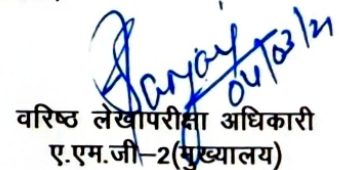 Sanjay
04/03/21
वरिष्ठ लेखापरीक्षा अधिकारी
ए.एम.जी–2(मुख्यालय)